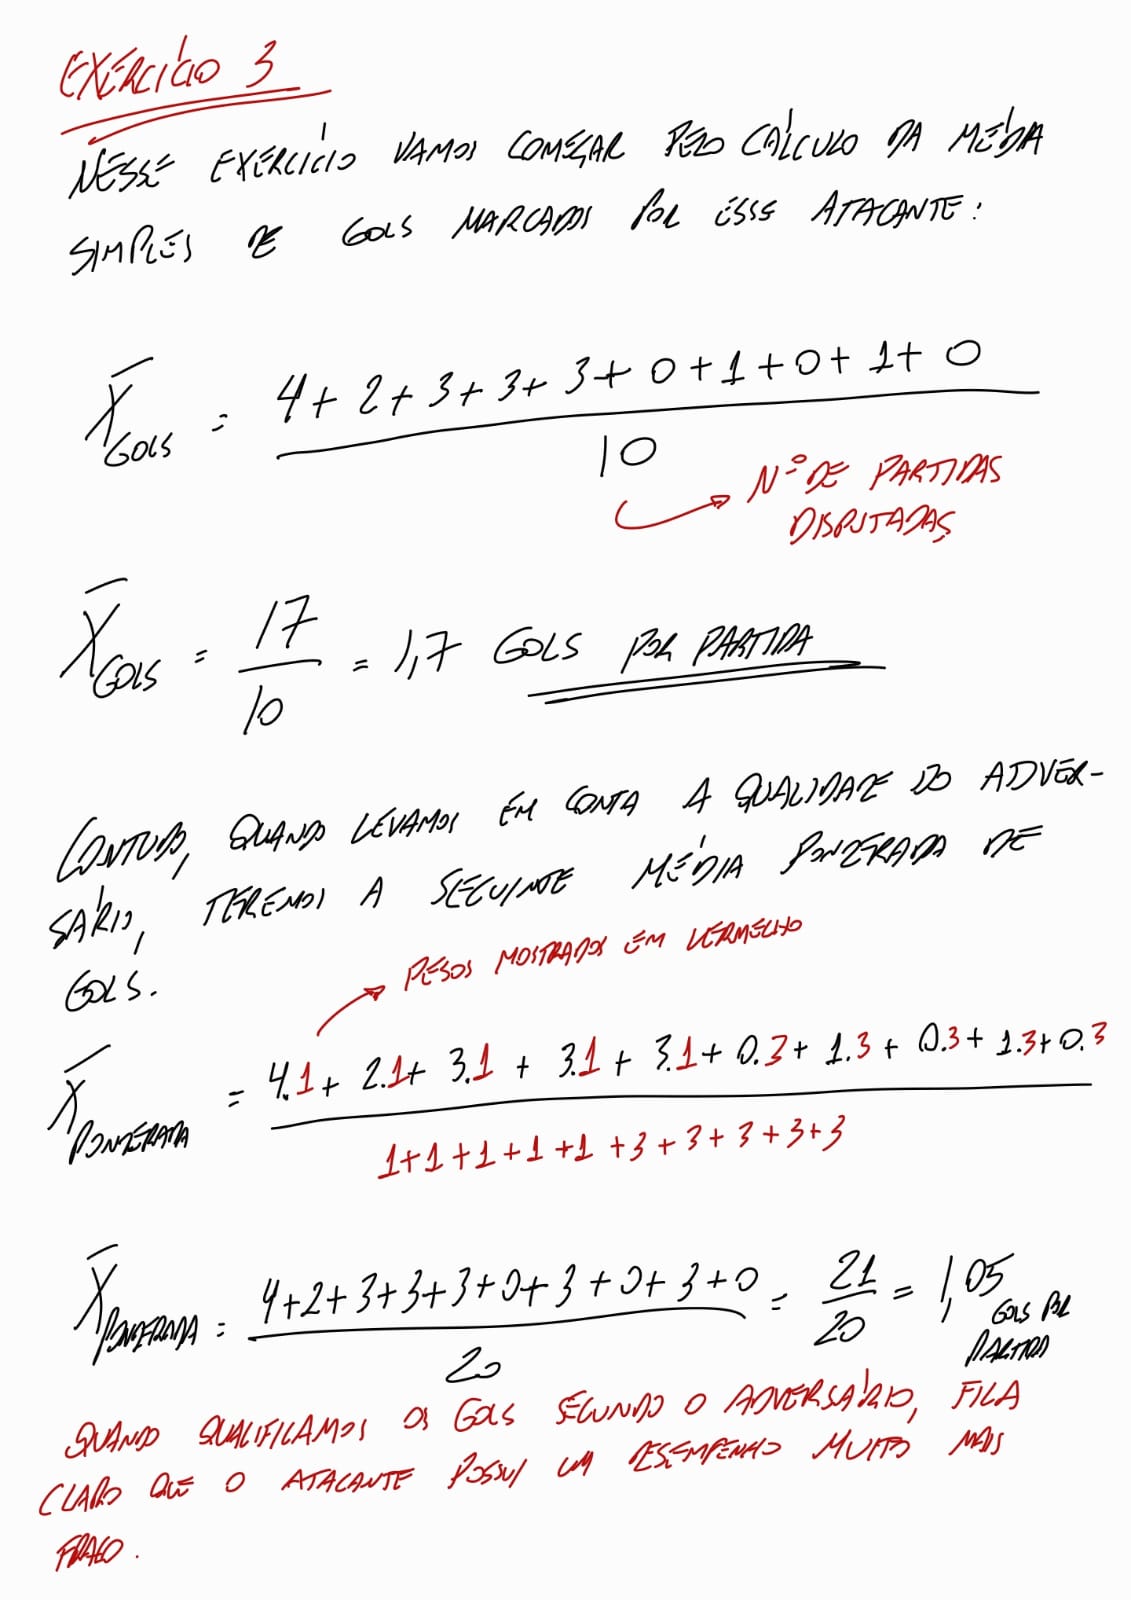 EXERCÍCIO 3
NESSE EXERCÍCIO VAMOS COMEÇAR PELO CÁLCULO DA MÉDIA
SIMPLES DE GOLS MARCADOS POR ESSE ATACANTE:
X̄ GOLS = 4+2+3+3+3+0+1+0+1+0 / 10
Nº DE PARTIDAS
DISPUTADAS
X̄ GOLS = 17/10 = 1,7 GOLS POR PARTIDA
CONTUDO, QUANDO LEVAMOS EM CONTA A QUALIDADE DO ADVER-
SÁRIO, TEREMOS A SEGUINTE MÉDIA PONDERADA DE
GOLS.
PESOS MOSTRADOS EM VERMELHO
X̄ PONDERADA = 4.1+2.1+3.1+3.1+3.1+0.3+1.3+0.3+1.3+0.3 / 1+1+1+1+1+3+3+3+3+3
X̄ PONDERADA = 4+2+3+3+3+0+3+0+3+0 / 20 = 21/20 = 1,05 GOLS POR PARTIDA
QUANDO QUALIFICAMOS OS GOLS SEGUNDO O ADVERSÁRIO, FICA
CLARO QUE O ATACANTE POSSUI UM DESEMPENHO MUITO MAIS
FRACO.